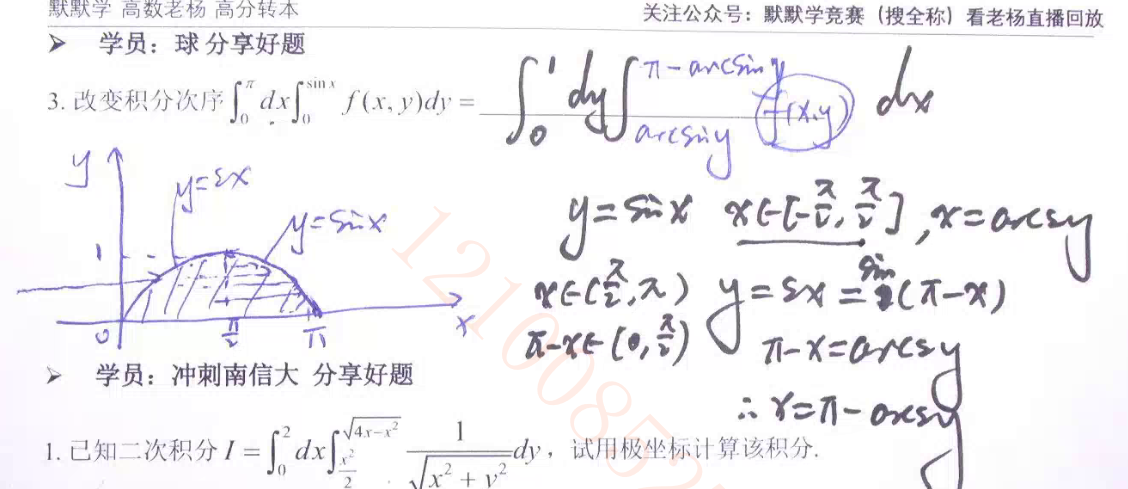 默默学 高数老杨 高分转本
关注公众号：默默学竞赛（搜全称）看老杨直播回放
➢ 学员：球 分享好题
3. 改变积分次序∫₀^π dx∫₀^{sin x} f(x, y)dy = ∫₀^1 dy∫_{arcsiny}^{π-arcsiny} f(x,y) dx
y
y=sx
y=sinx
1
0
π/2
π
x
y=sinx x∈[-π/2, π/2], x=arcsy
x∈(π/2, π) y=sx=sin(π-x)
π-x∈(0, π/2) π-x=arcsy
∴ x=π-arcsy
➢ 学员：冲刺南信大 分享好题
1. 已知二次积分 I = ∫₀² dx∫_{x²/2}^{√(4x-x²)} 1/√(x²+y²) dy，试用极坐标计算该积分.